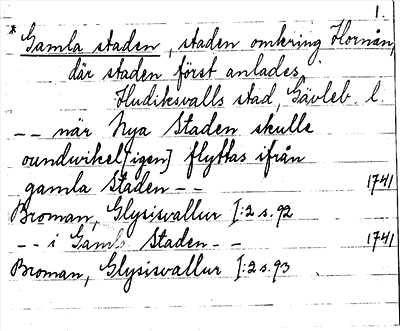 1.
* Gamla staden, staden omkring Hornån,
där staden först anlades,
Hudiksvalls stad, Gävleb. l.
-- när Nya Staden skulle
oundwikel[igen] flyttas ifrån
gamla Staden -- 1741
Broman, Glysisvallur I:2 s. 92
-- i Gamla Staden -- 1741
Broman, Glysisvallur I:2 s. 93